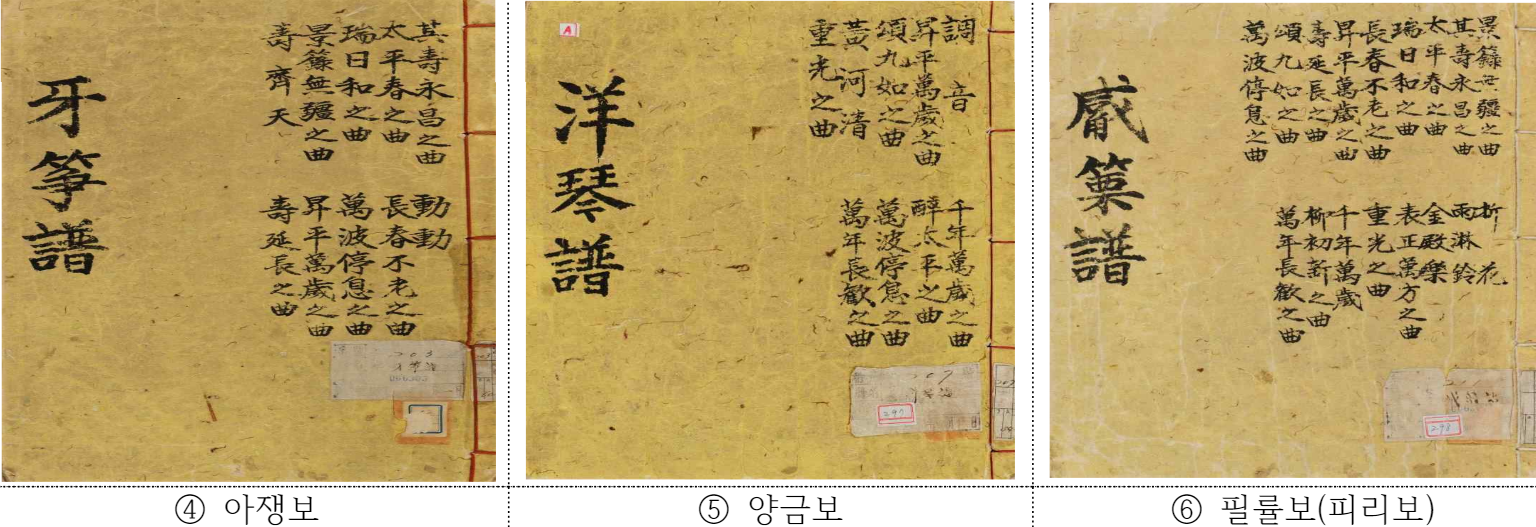 其壽永昌之曲
太平春之曲
瑞日和之曲
景籙無疆之曲
壽齊天
動動
長春不老之曲
萬波停息之曲
昇平萬歲之曲
壽延長之曲
牙箏譜
203
④ 아쟁보
A
調音
昇平萬歲之曲
頌九如之曲
黃河清
重光之曲
千年萬歲之曲
醉太平之曲
萬波停息之曲
萬年長歡之曲
洋琴譜
207
297
⑤ 양금보
景籙無疆之曲
其壽永昌之曲
太平春之曲
瑞日和之曲
長春不老之曲
昇平萬歲之曲
壽延長之曲
頌九如之曲
萬波停息之曲
折花
雨淋鈴
金殿樂
表正萬方之曲
重光之曲
千年萬歲
柳初新之曲
萬年長歡之曲
觱篥譜
298
⑥ 필률보(피리보)